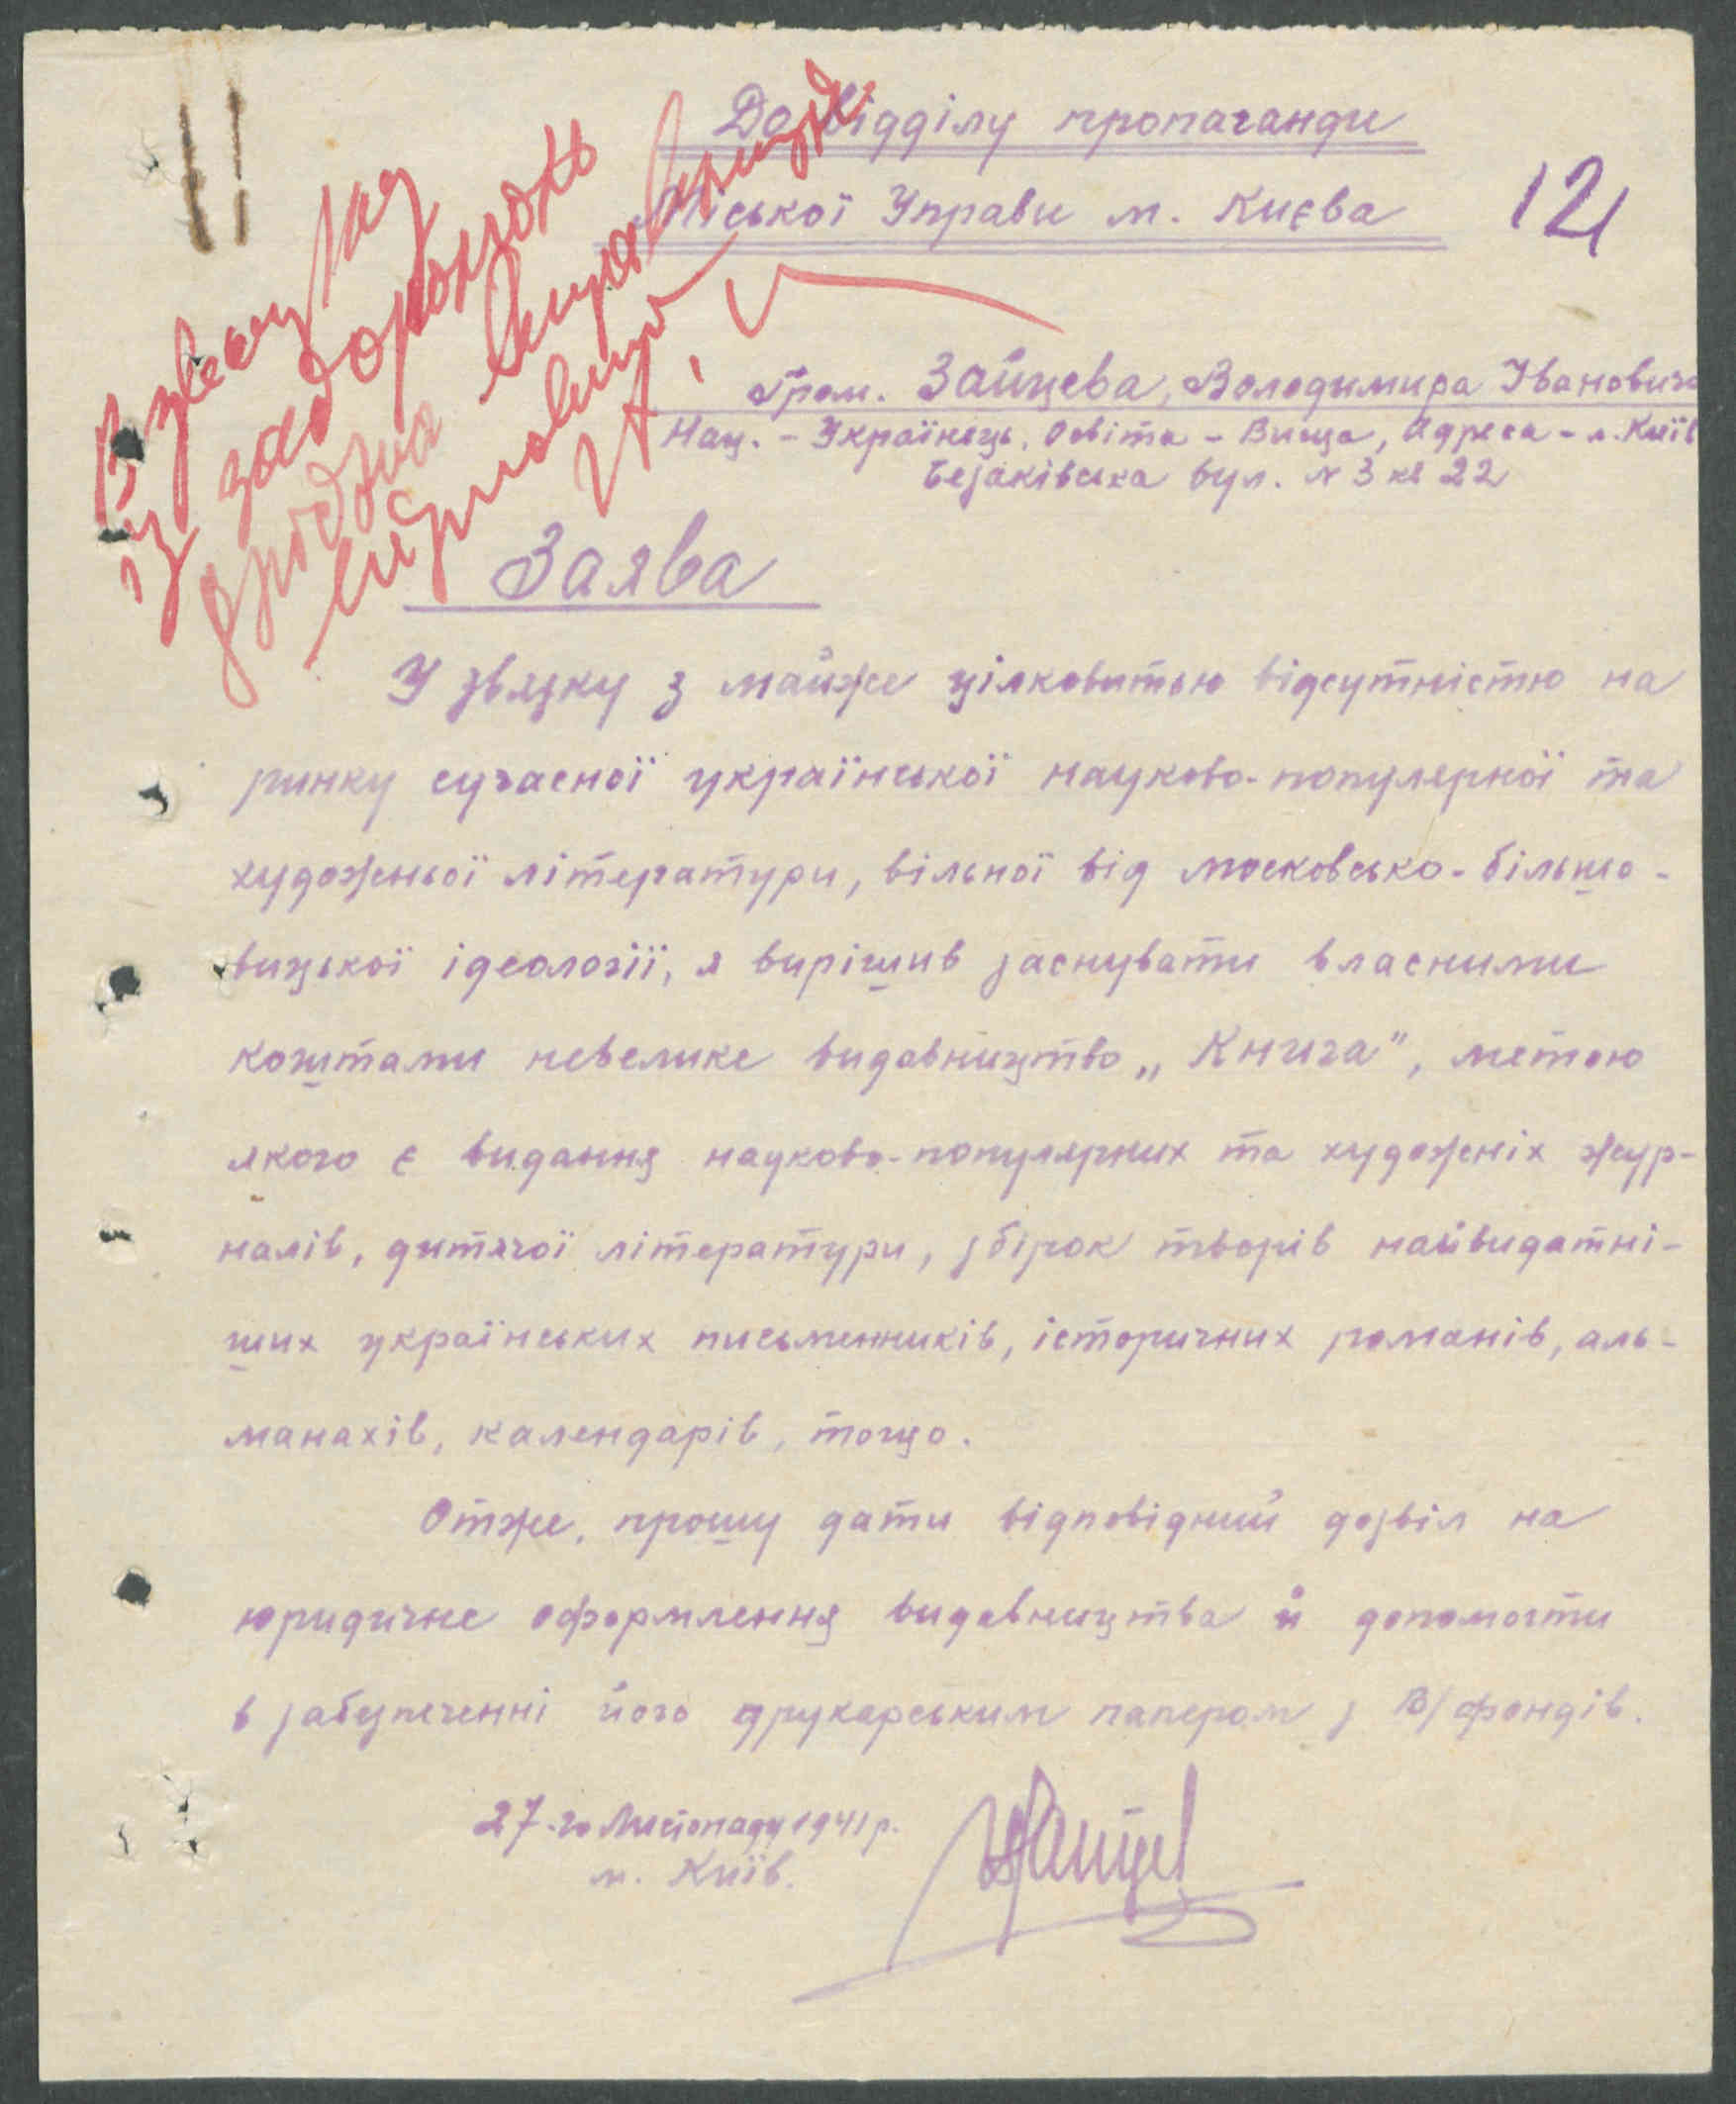 До Відділу пропаганди
Міської Управи м. Києва
121
Гром. Зайцева, Володимира Івановича
Нац. - Українець, Освіта - Вища, Адреса - м. Київ
вул. № 3 кв 22
Заява
У звязку з майже цілковитою відсутністю на
ринку сучасної української науково-популярної та
художньої літератури, вільної від московсько-більшо-
вицької ідеології, я вирішив заснувати власними
коштами невелике видавництво „Книга", метою
якого є видання науково-популярних та художніх жур-
налів, дитячої літератури, збірок творів найвидатні-
ших українських письменників, історичних романів, аль-
манахів, календарів, тощо.
Отже, прошу дати відповідний дозвіл на
юридичне оформлення видавництва й допомогти
в забезпеченні його друкарським папером з В/фондів.
27-го Листопаду 1941 р.
м. Київ.